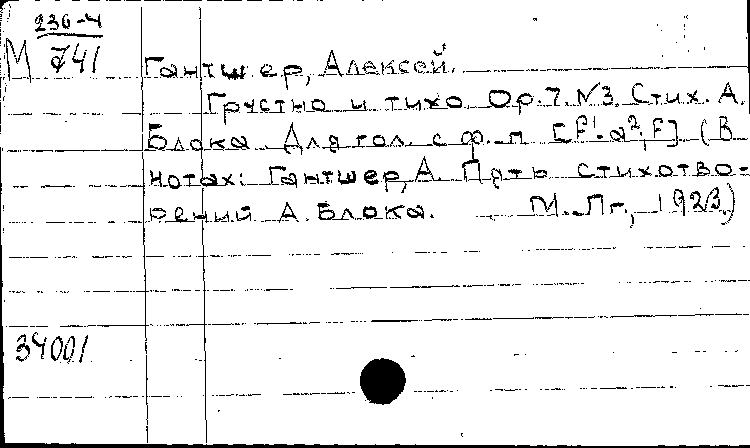 236-4
М 741
Гантшер, Алексей.
Грустно и тихо. Op. 7. N3. Стих. А.
Блока. Для гол. с ф.-п [f¹-a², F] (В
нотах: Гантшер, А. Пять стихотво-
рений А. Блока. М.-Пг., 1923.)
34001